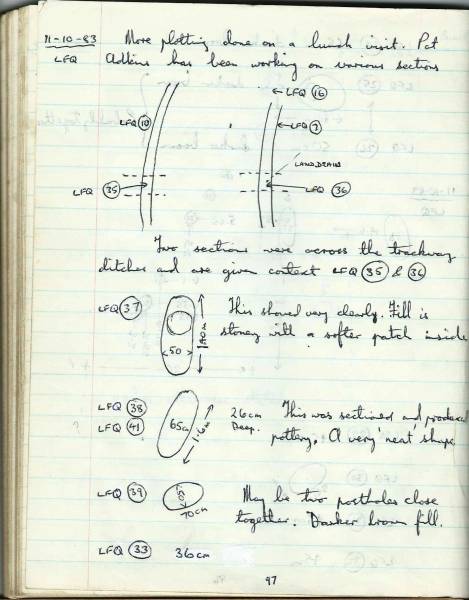 11-10-83 More plotting done on a lunch visit. Pat
LFQ Adkins has been working on various sections
← LFQ 16
LFQ 10
← LFQ 7
LAND DRAIN
LFQ 35
LFQ 36
Two sections were across the trackway
ditches and are given context LFQ 35 & 36
LFQ 37 50 1.40m This showed very clearly. Fill is
stoney with a softer patch inside
LFQ 38 65cm 1.6m 26cm This was sectioned and produced
LFQ 41 Deep. pottery. A very 'neat' shape
LFQ 39 70cm May be two postholes close
together. Darker brown fill.
LFQ 33 36cm
97